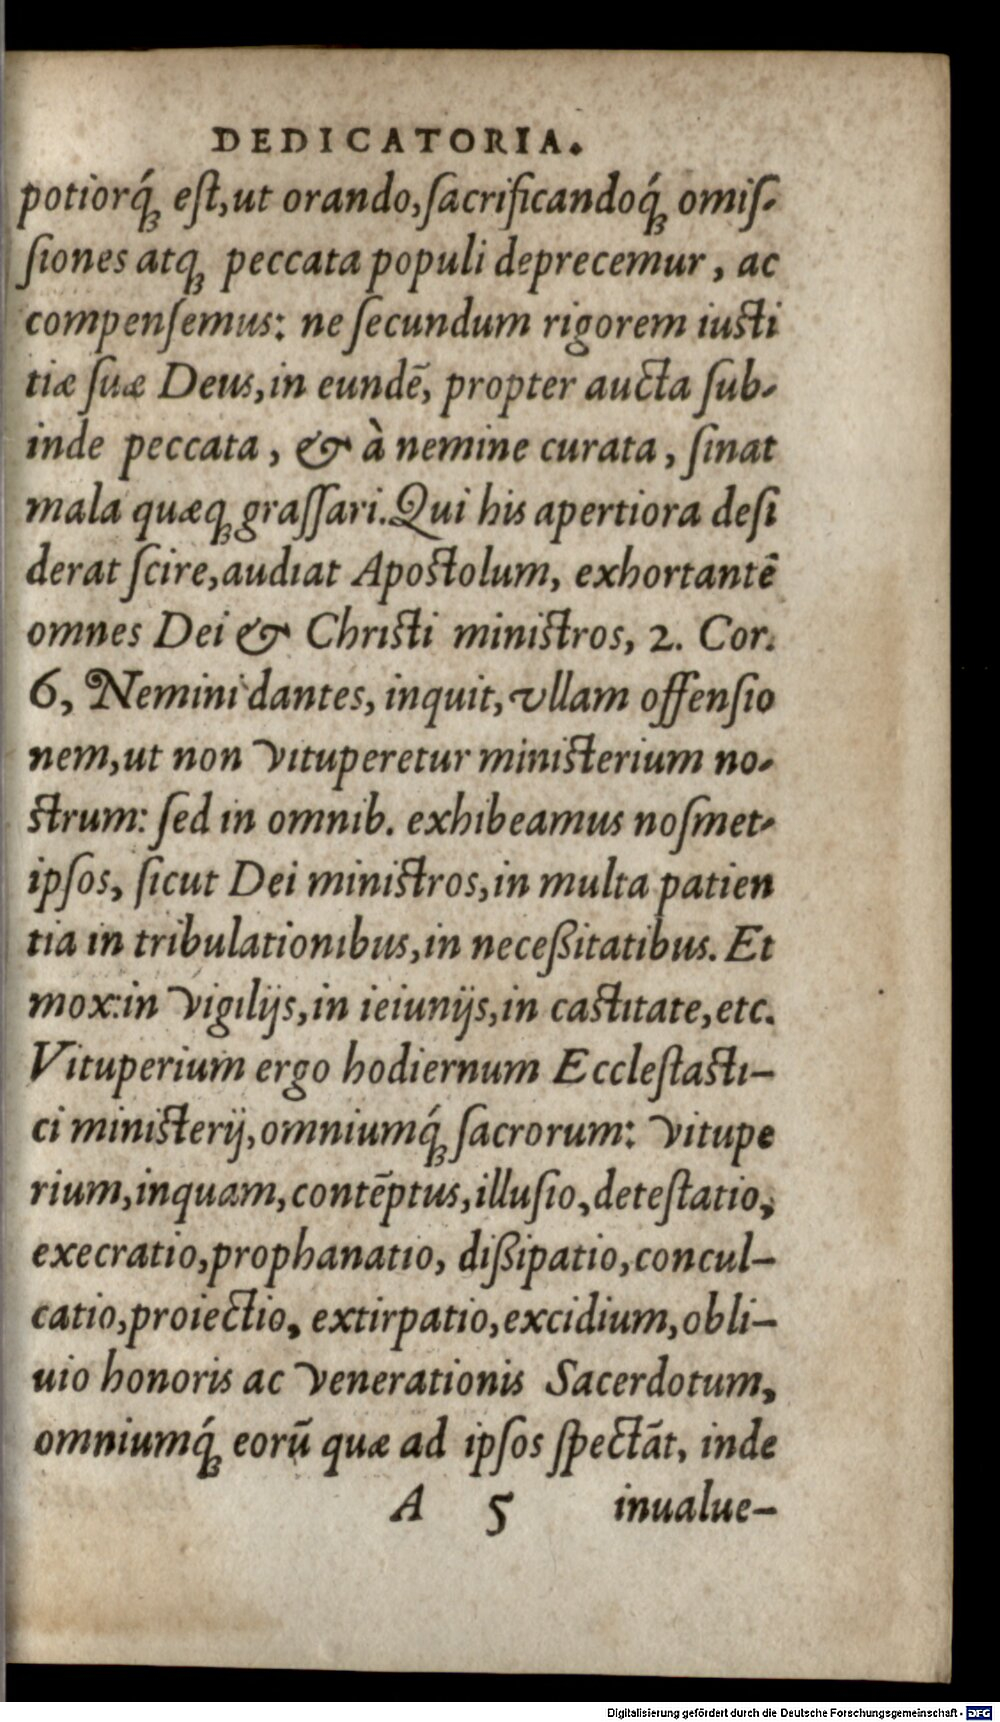 DEDICATORIA.
potiorq́ꝫ eſt, ut orando, ſacrificandoq́ꝫ omiſ-
ſiones atqꝫ peccata populi deprecemur, ac
compenſemus: ne ſecundum rigorem iuſti
tiæ ſuæ Deus, in eundē, propter aucta ſub-
inde peccata, & à nemine curata, ſinat
mala quæqꝫ graſſari. Qui his apertiora deſi
derat ſcire, audiat Apoſtolum, exhortantē
omnes Dei & Chriſti miniſtros, 2. Cor.
6, Nemini dantes, inquit, vllam offenſio
nem, ut non vituperetur miniſterium no-
ſtrum: ſed in omnib. exhibeamus noſmet-
ipſos, ſicut Dei miniſtros, in multa patien
tia in tribulationibus, in neceßitatibus. Et
mox: in vigilijs, in ieiunijs, in caſtitate, etc.
Vituperium ergo hodiernum Eccleſtaſti-
ci miniſterij, omniumq́ꝫ ſacrorum: vitupe
rium, inquam, contēptus, illuſio, deteſtatio,
execratio, prophanatio, dißipatio, concul-
catio, proiectio, extirpatio, excidium, obli-
uio honoris ac venerationis Sacerdotum,
omniumq́ꝫ eorū quæ ad ipſos ſpectāt, inde
A 5 inualue-
Digitalisierung gefördert durch die Deutsche Forschungsgemeinschaft - DFG